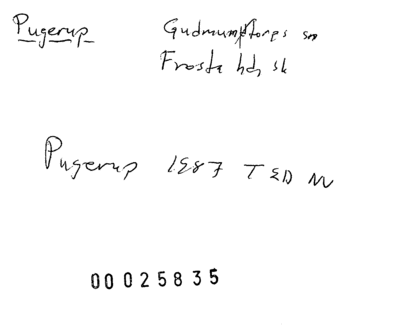 Pugerup Gudmuntorps sn
Frosta hd, sk
Pugerup 1587 T ED M
00025835